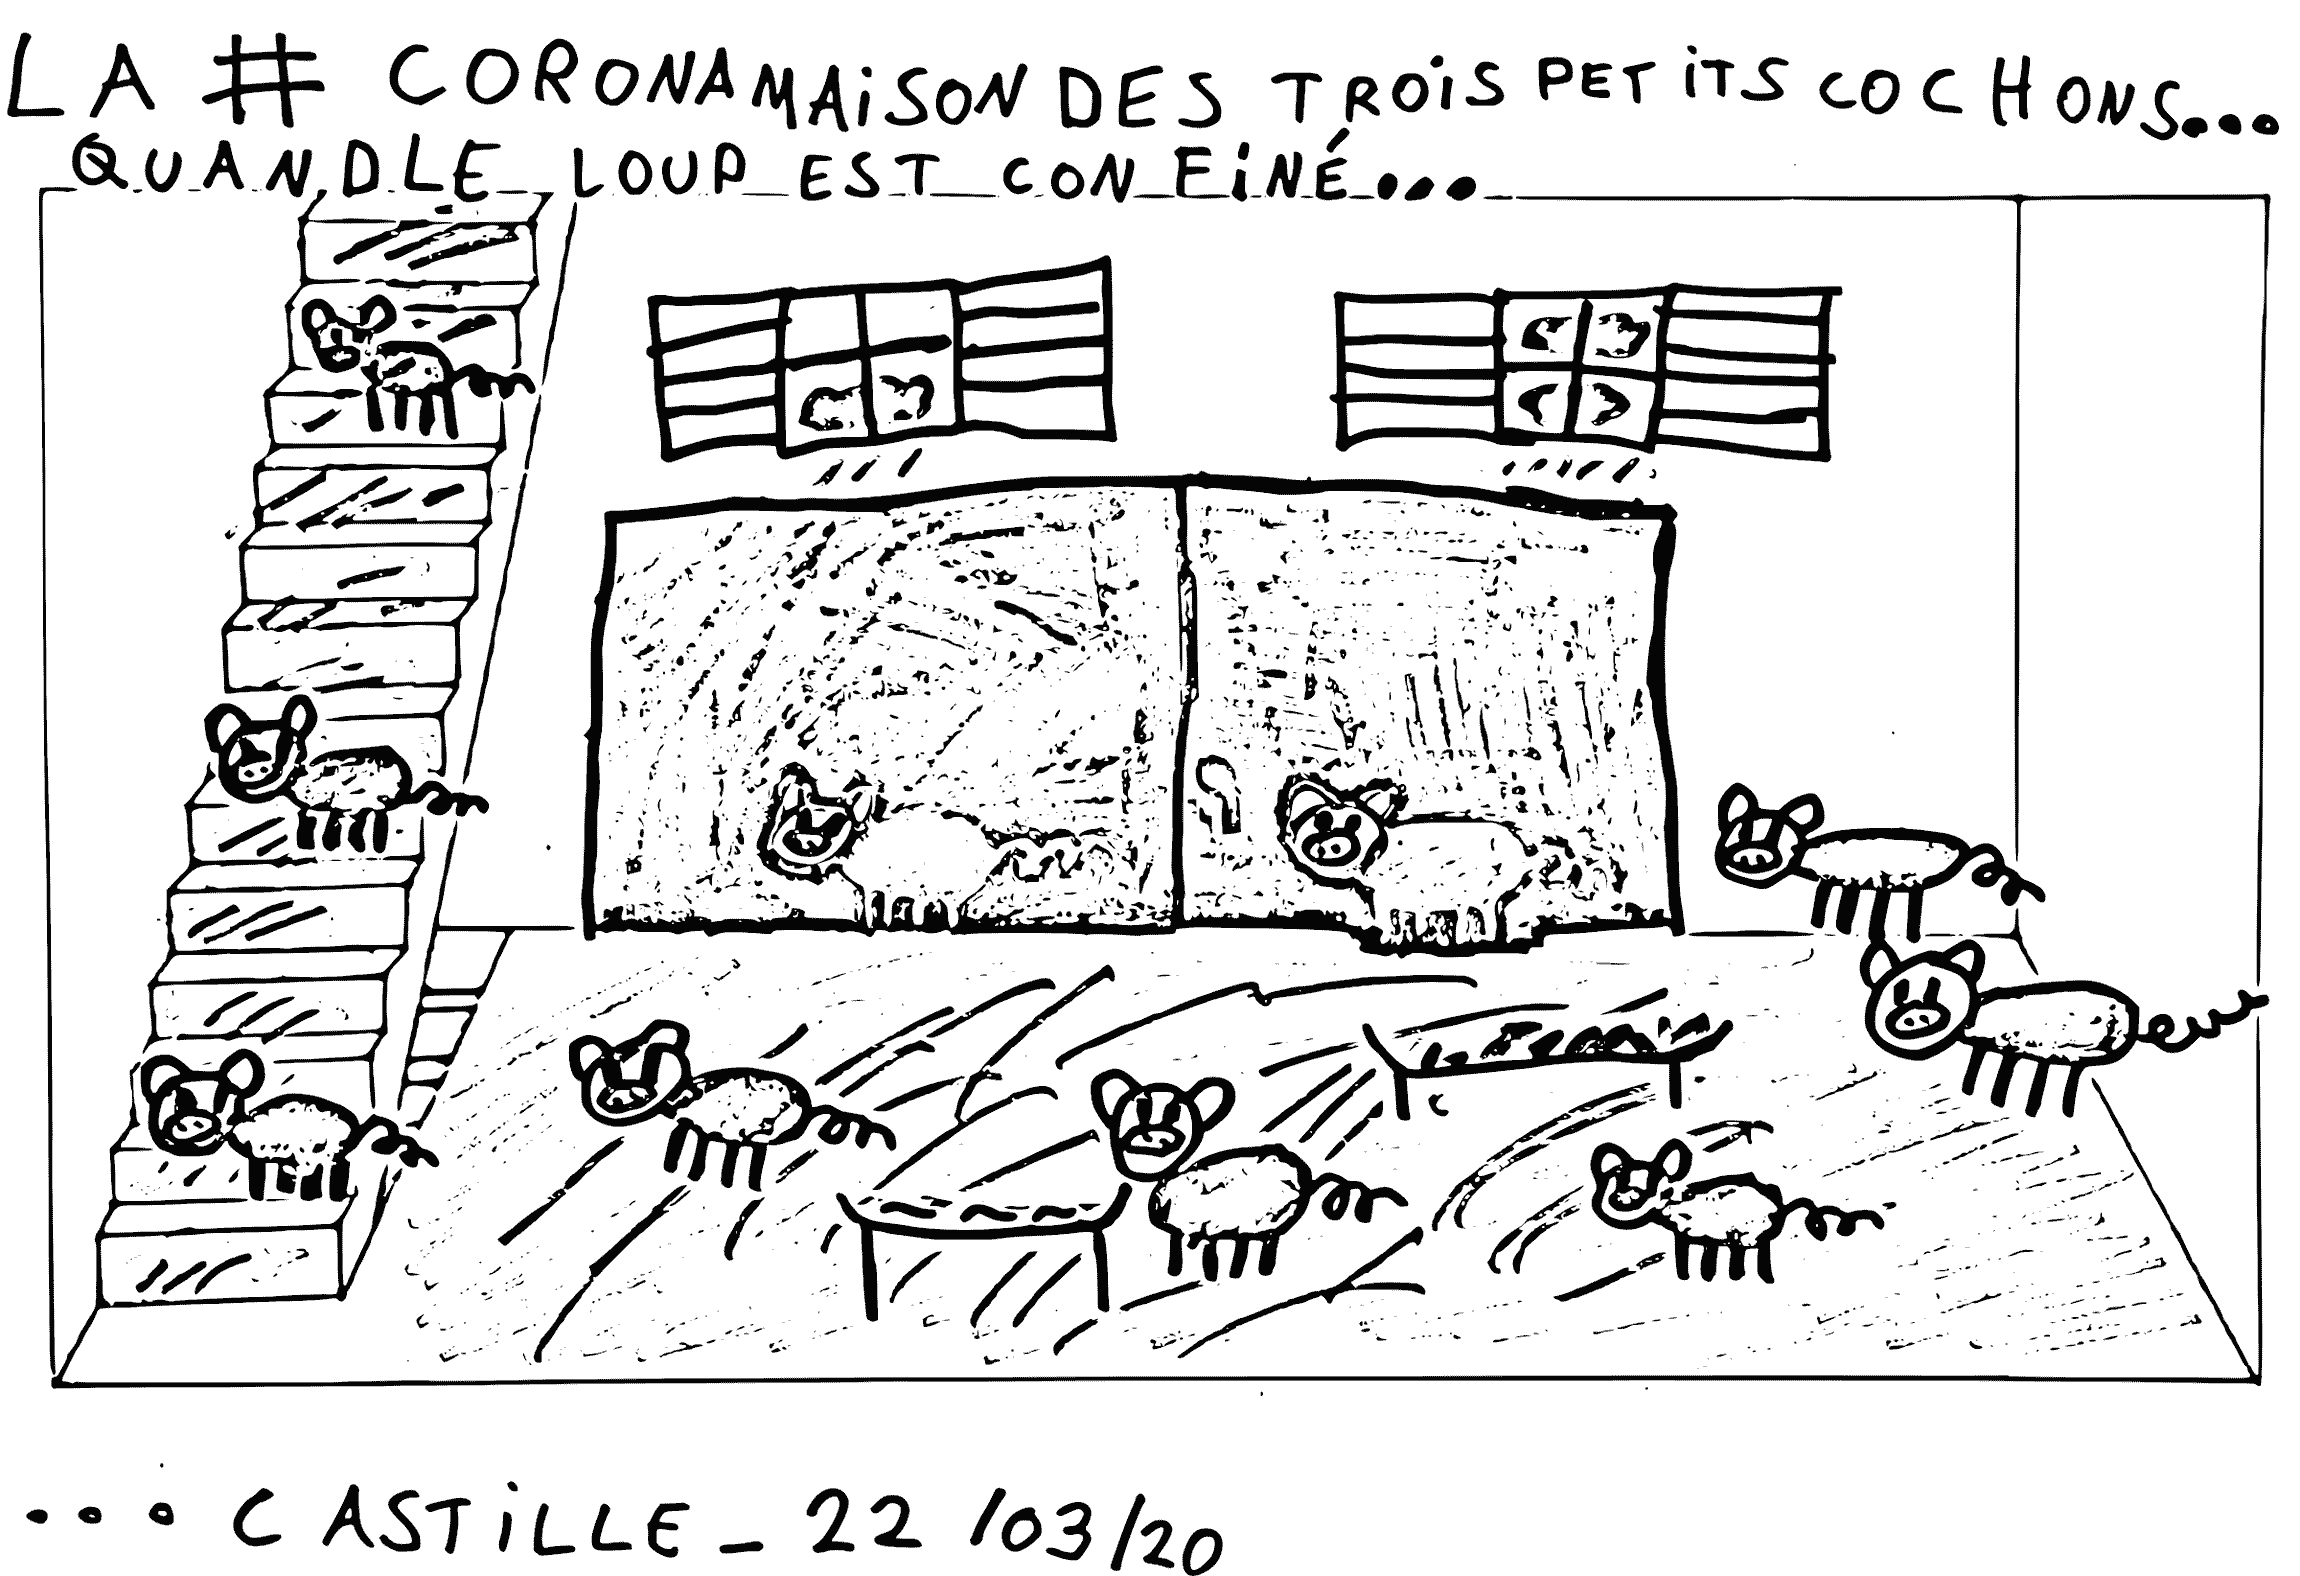 LA # CORONAMAiSON DES TROiS PETiTS COCHONS...
QUAND LE LOUP EST CONFiNÉ...
... CASTiLLE_ 22/03/20